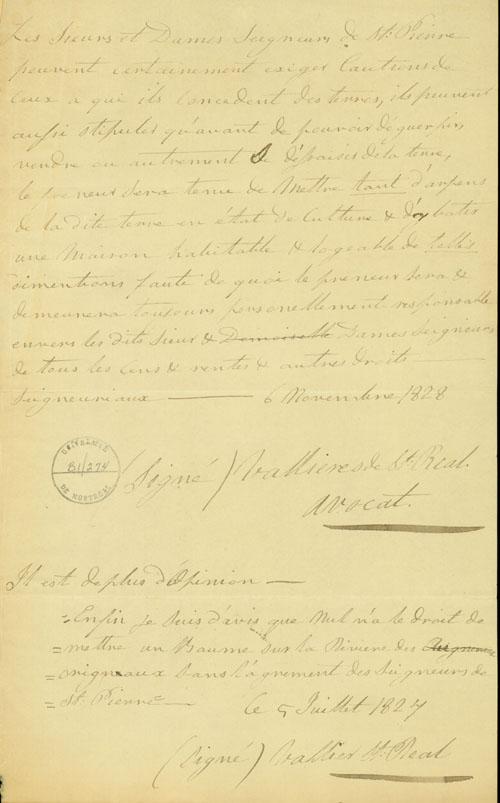 Les Sieurs et Dames Seigneurs de St. Pierre
peuvent certainement exiger Cautions de
ceux a qui ils concedent des terres, ils peuvent
aussi stipuler qu'avant de pouvoir déguerpir,
vendre ou autrement se désaisir de la terre,
le preneur sera tenu de Mettre tant d'arpens
de la dite terre en état de Culture & d'y batir
une Maison habitable & logeable de telles
dimentions faute de quoi le preneur sera &
demeurera toujours personellement responsable
envers les dits Sieur & Demoiselle Dames Seigneurs
de tous les Cens & rentes & autres droits
Seigneuriaux — 6 Novembre 1828
UNIVERSITÉ
81/274
DE MONTREAL
(Signé) Vallieres de St. Real.
avocat.
Il est de plus d'Opinion —
= Enfin je suis d'avis que Nul n'a le droit de
= mettre un Baume sur la Riviere des
= origneaux sans l'agrement des Seigneurs de
= St. Pierre — Ce 5 Juillet 1827
(Signé) Vallier St. Real